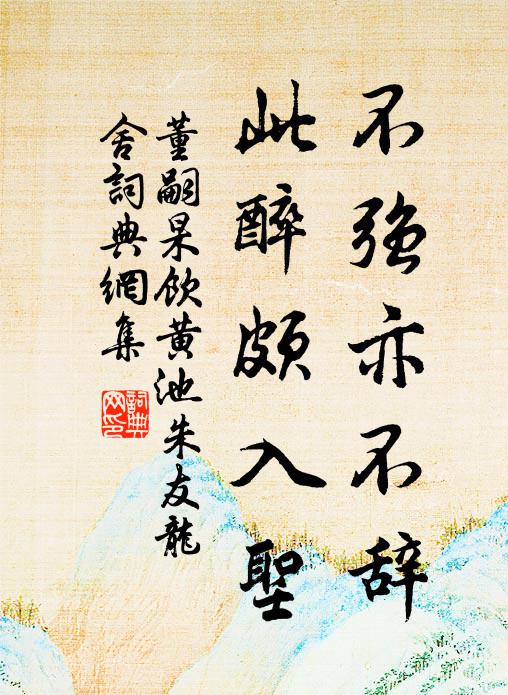 不強亦不辞
此醉頗入聖
董嗣杲飲黄池朱友龍
舍詞典網集
詞典
网印